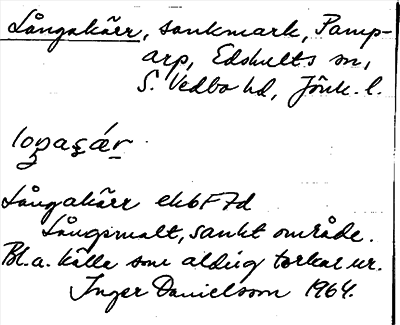 Långakärr, sankmark, Pamp-
arp, Edshults sn,
S. Vedbo hd, Jönk. l.
Långakärr ekbF7d
Långsmalt, sankt område.
Bl.a. källa som aldrig torkar ur.
Inger Danielsson 1964.